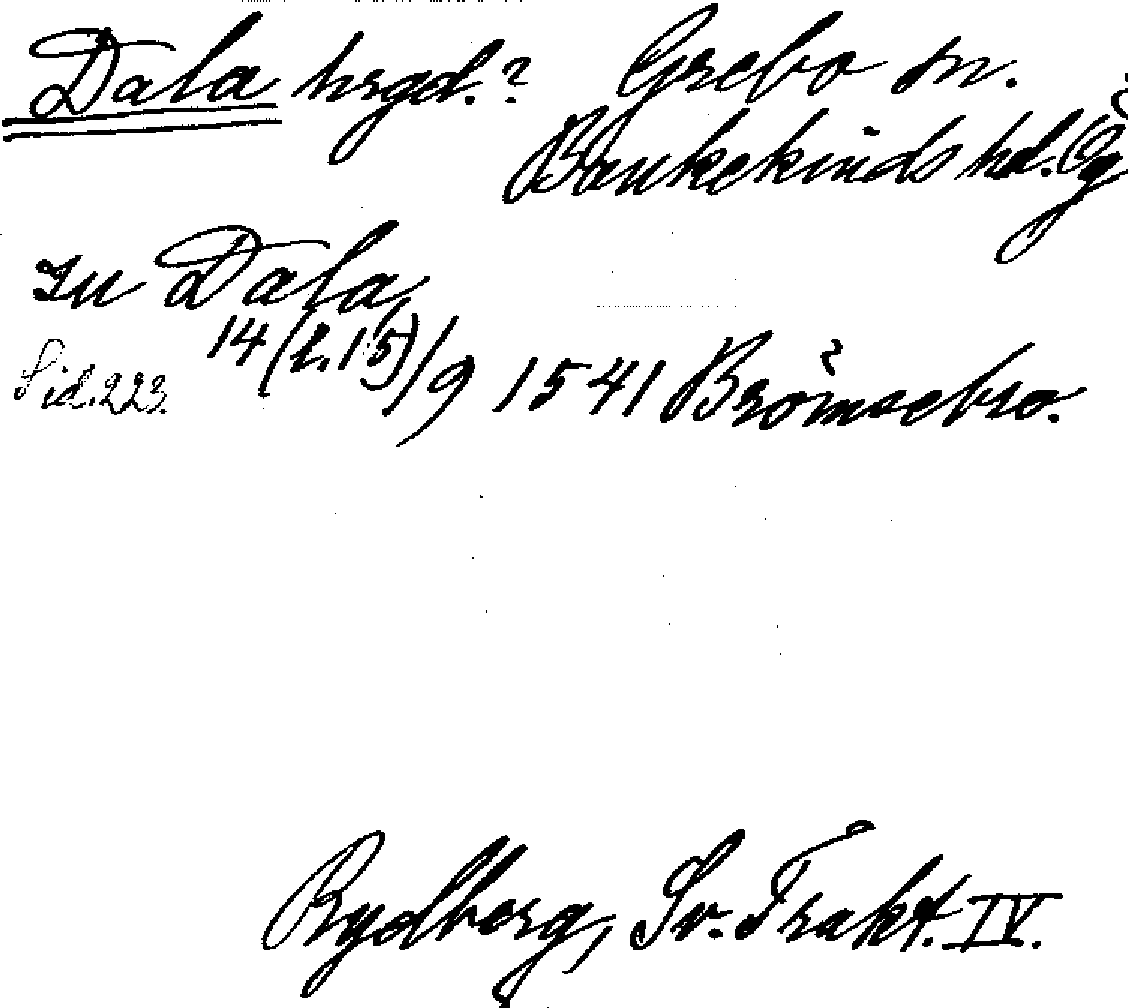 Dala hrgd.? Grebo sn.
Bankekinds hd. Ög
zu Dala,
Sid. 223. 14 (l. 15)/9 1541 Brömsebro.
Rydberg, Sv. Trakt. IV.